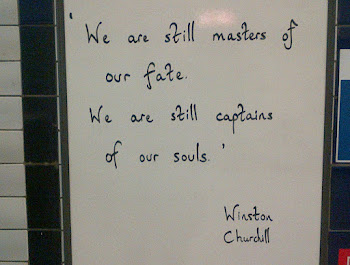 'We are still masters of
our fate.
We are still captains
of our souls.'
Winston
Churchill